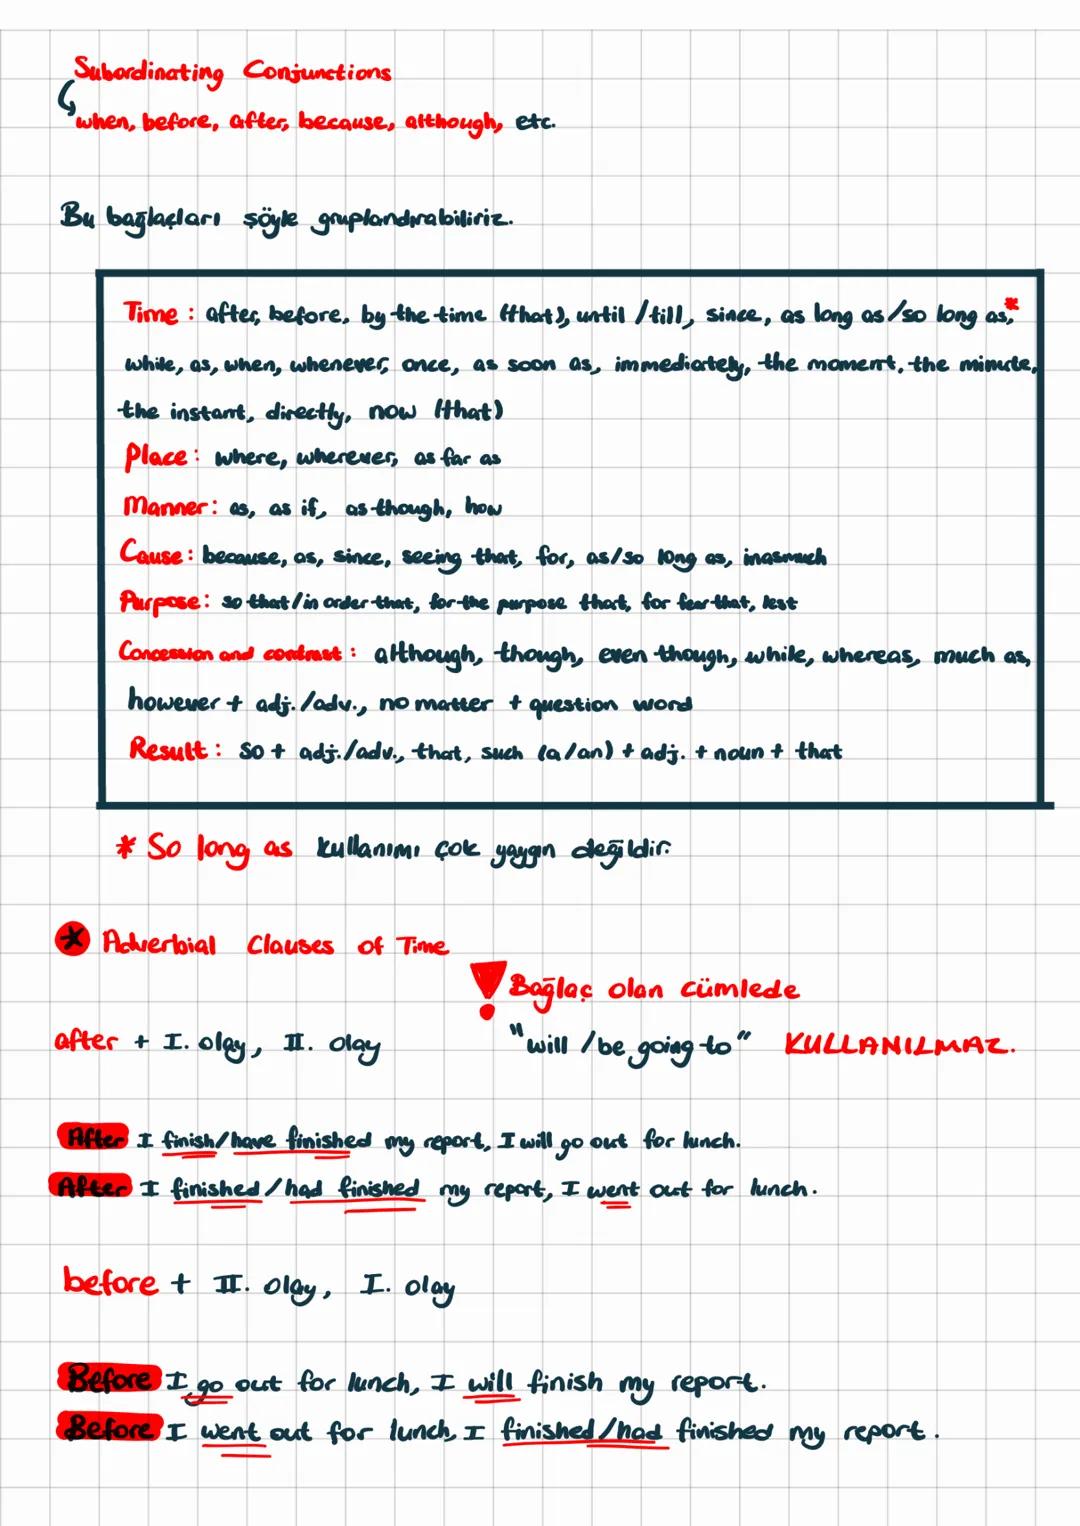 Subordinating Conjunctions
when, before, after, because, although, etc.
Bu bağlaçları şöyle gruplandırabiliriz.
Time : after, before, by the time (that), until / till, since, as long as / so long as,*
while, as, when, whenever, once, as soon as, immediately, the moment, the minute,
the instant, directly, now (that)
Place : where, wherever, as far as
Manner : as, as if, as though, how
Cause : because, as, since, seeing that, for, as/so long as, inasmuch
Purpose : so that / in order that, for the purpose that, for fear that, lest
Concession and contrast : although, though, even though, while, whereas, much as,
however + adj. / adv., no matter + question word
Result : so + adj. / adv., that, such (a / an) + adj. + noun + that
* So long as kullanımı çok yaygın değildir.
* Adverbial Clauses of Time
! Bağlaç olan cümlede
after + I. olay, II. olay "will / be going to" KULLANILMAZ.
After I finish / have finished my report, I will go out for lunch.
After I finished / had finished my report, I went out for lunch.
before + II. olay, I. olay
Before I go out for lunch, I will finish my report.
Before I went out for lunch, I finished / had finished my report.